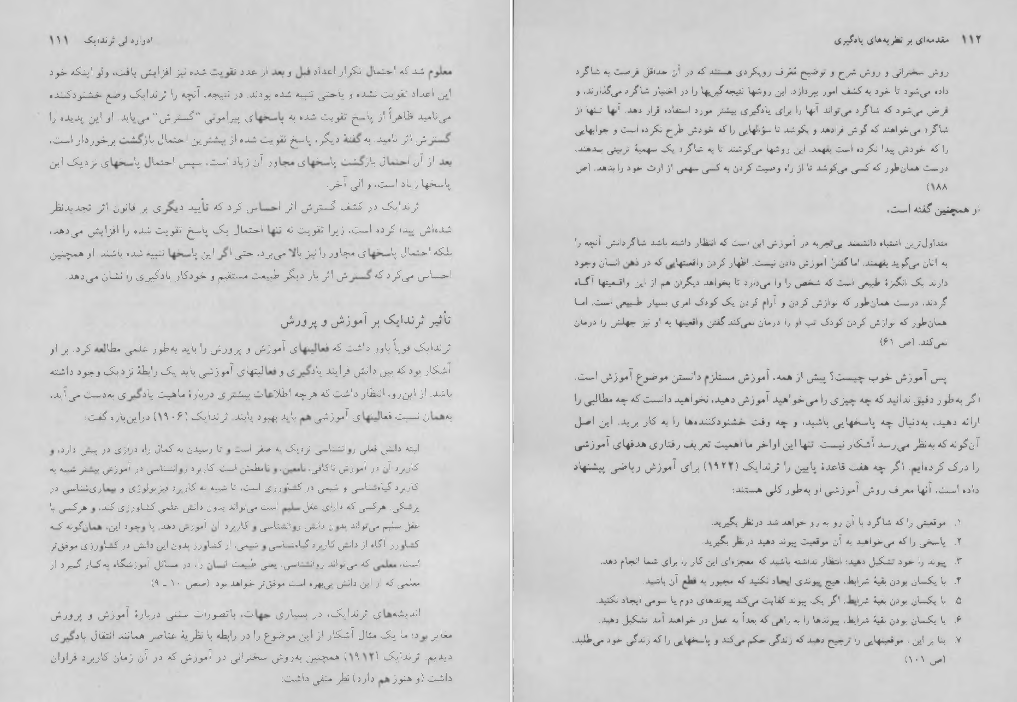 ادوارد لی ثرندایک ۱۱۱
معلوم شد که احتمال تکرار اعداد قبل و بعد از عدد تقویت شده نیز افزایش یافت، ولو اینکه خود
این اعداد تقویت نشده و یا حتی تنبیه شده بودند. در نتیجه، آنچه را ثرندایک وضع خشنودکننده
می‌نامید ظاهراً از پاسخ تقویت شده به پاسخهای پیرامونی "گسترش" می‌یابد. او این پدیده را
گسترش اثر نامید. به گفتهٔ دیگر، پاسخ تقویت شده از بیشترین احتمال بازگشت برخوردار است،
بعد از آن احتمال بازگشت پاسخهای مجاور آن زیاد است، سپس احتمال پاسخهای نزدیک این
پاسخها زیاد است، و الی آخر.
ثرندایک در کشف گسترش اثر احساس کرد که تأیید دیگری بر قانون اثر تجدیدنظر
شده‌اش پیدا کرده است، زیرا تقویت نه تنها احتمال یک پاسخ تقویت شده را افزایش می‌دهد،
بلکه احتمال پاسخهای مجاور را نیز بالا می‌برد، حتی اگر این پاسخها تنبیه شده باشند. او همچنین
احساس می‌کرد که گسترش اثر بار دیگر طبیعت مستقیم و خودکار یادگیری را نشان می‌دهد.
تأثیر ثرندایک بر آموزش و پرورش
ثرندایک قویاً باور داشت که فعالیتهای آموزش و پرورش را باید به‌طور علمی مطالعه کرد. بر او
آشکار بود که بین دانش فرایند یادگیری و فعالیتهای آموزشی باید یک رابطهٔ نزدیک وجود داشته
باشد. از این‌رو، انتظار داشت که هرچه اطلاعات بیشتری دربارهٔ ماهیت یادگیری به‌دست می‌آید،
به‌همان نسبت فعالیتهای آموزشی هم باید بهبود یابند. ثرندایک (۱۹۰۶) دراین‌باره گفت:
البته دانش فعلی روانشناسی نزدیک به صفر است و تا رسیدن به کمال راه درازی در پیش دارد، و
کاربرد آن در آموزش ناکافی، نامعین، و نامطمئن است. کاربرد روانشناسی در آموزش بیشتر شبیه به
کاربرد گیاه‌شناسی و شیمی در کشاورزی است، تا شبیه به کاربرد فیزیولوژی و بیماری‌شناسی در
پزشکی. هرکسی که دارای عقل سلیم است می‌تواند بدون دانش علمی کشاورزی کند، و هرکسی با
عقل سلیم می‌تواند بدون دانش روانشناسی و کاربرد آن آموزش دهد. با وجود این، همان‌گونه که
کشاورز آگاه از دانش کاربرد گیاه‌شناسی و شیمی، از کشاورز بدون این دانش در کشاورزی موفق‌تر
است، معلمی که می‌تواند روانشناسی، یعنی طبیعت انسان را، در مسائل آموزشگاه به‌کار گیرد از
معلمی که از این دانش بی‌بهره است موفق‌تر خواهد بود. (صص ۱۰ - ۹)
اندیشه‌های ثرندایک، در بسیاری جهات، باتصورات سنتی دربارهٔ آموزش و پرورش
مغایر بود؛ ما یک مثال آشکار از این موضوع را در رابطه با نظریهٔ عناصر همانند انتقال یادگیری
دیدیم. ثرندایک (۱۹۱۲) همچنین به‌روش سخنرانی در آموزش که در آن زمان کاربرد فراوان
داشت (و هنوز هم دارد) نظر منفی داشت:
۱۱۲ مقدمه‌ای بر نظریه‌های یادگیری
روش سخنرانی و روش شرح و توضیح مُعَرِف رویکردی هستند که در آن حداقل فرصت به شاگرد
داده می‌شود تا خود به کشف امور بپردازد. این روشها نتیجه‌گیریها را در اختیار شاگرد می‌گذارند، و
فرض می‌شود که شاگرد می‌تواند آنها را برای یادگیری بیشتر مورد استفاده قرار دهد. آنها تنها از
شاگرد می‌خواهند که گوش فرادهد و بکوشد تا سؤالهایی را که خودش طرح نکرده است و جوابهایی
را که خودش پیدا نکرده است بفهمد. این روشها می‌کوشند تا به شاگرد یک سهمیهٔ تربیتی بدهند،
درست همان‌طور که کسی می‌کوشد تا از راه وصیت کردن به کسی سهمی از ارث خود را بدهد. (ص
۱۸۸)
او همچنین گفته است،
متداول‌ترین اشتباه دانشمند بی‌تجربه در آموزش این است که انتظار داشته باشد شاگردانش آنچه را
به آنان می‌گوید بفهمند. اما گفتن آموزش دادن نیست. اظهار کردن واقعیتهایی که در ذهن انسان وجود
دارند یک انگیزهٔ طبیعی است که شخص را وا می‌دارد تا بخواهد دیگران هم از این واقعیتها آگاه
گردند، درست همان‌طور که نوازش کردن و آرام کردن یک کودک امری بسیار طبیعی است. اما
همان‌طور که نوازش کردن کودک تب او را درمان نمی‌کند گفتن واقعیتها به او نیز جهلش را درمان
نمی‌کند. (ص ۶۱)
پس آموزش خوب چیست؟ پیش از همه، آموزش مستلزم دانستن موضوع آموزش است.
اگر به‌طور دقیق ندانید که چه چیزی را می‌خواهید آموزش دهید، نخواهید دانست که چه مطالبی را
ارائه دهید، به‌دنبال چه پاسخهایی باشید، و چه وقت خشنودکننده‌ها را به کار برید. این اصل
آن‌گونه که به‌نظر می‌رسد آشکار نیست. تنها این اواخر ما اهمیت تعریف رفتاری هدفهای آموزشی
را درک کرده‌ایم. اگر چه هفت قاعدهٔ پایین را ثرندایک (۱۹۲۲) برای آموزش ریاضی پیشنهاد
داده است، آنها معرف روش آموزشی او به‌طور کلی هستند:
۱. موقعیتی را که شاگرد با آن رو به رو خواهد شد درنظر بگیرید.
۲. پاسخی را که می‌خواهید به آن موقعیت پیوند دهید درنظر بگیرید.
۳. پیوند را خود تشکیل دهید؛ انتظار نداشته باشید که معجزه‌ای این کار را برای شما انجام دهد.
۴. با یکسان بودن بقیهٔ شرایط، هیچ پیوندی ایجاد نکنید که مجبور به قطع آن باشید.
۵. با یکسان بودن بقیهٔ شرایط، اگر یک پیوند کفایت می‌کند پیوندهای دوم یا سومی ایجاد نکنید.
۶. با یکسان بودن بقیهٔ شرایط، پیوندها را به راهی که بعداً به عمل در خواهند آمد تشکیل دهید.
۷. بنا بر این، موقعیتهایی را ترجیح دهید که زندگی حکم می‌کند و پاسخهایی را که زندگی خود می‌طلبد.
(ص ۱۰۱)